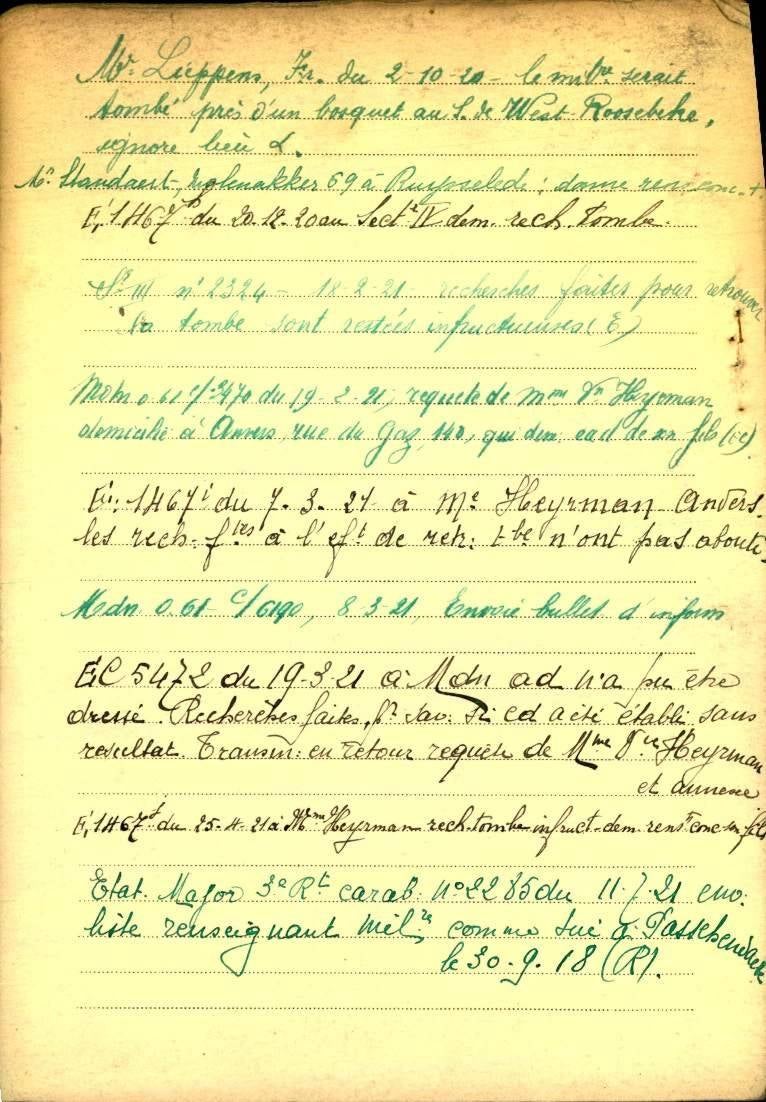 Mr. Lippens, Fr. du 2-10-20 - le mre serait
tombé près d'un bosquet au S. de West-Roosebeke,
ignore lieu
Mr. Standaert, Molenakker 69 à Ruysselede: dame rens conc.
E, 1467 du 20-12-20 au Sectr IV dem. rech. tombe.
Sr III n° 2324 - 18-2-21 - recherches faites pour retrouver
la tombe sont restées infructueuses (E)
Mdn 0.61 c/2470 du 19-2-21, requete de Mme Heyrman
domicilié à Anvers, rue du Gaz, 140, qui dem. de son fils
E: 1467 du 7-3-21 à Me Heyrman Anvers.
les rech. ftes à l'eft de retr: tbe n'ont pas abouti.
Mdn. 0.61 c/6190, 8-3-21, Envoie bullet d'inform
E C 5472 du 19-3-21 à Mdn ad n'a pu être
dressé. Recherches faites pr sav: si ad a été établi sans
resultat. Transm: en retour requête de Mme Vve Heyrman
et annexe
E, 1467 du 25-4-21 à Mme Heyrman rech. tombe infruct. dem. renst conc. son fils
Etat Major 3e Rt carab. n° 2285 du 11-7-21 env.
liste renseignant milre comme tué à Passchendaele
le 30-9-18 (R).